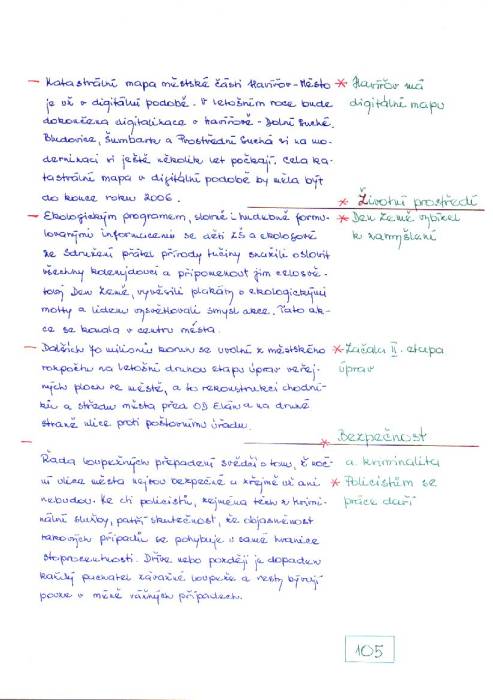 – Katastrální mapa městské části Havířov-Město
je už v digitální podobě. V letošním roce bude
dokončena digitalizace v Havířově-Dolní Suché.
Bludovice, Šumbark a Prostřední Suchá si na mo-
dernizaci si ještě několik let počkají. Celá ka-
tastrální mapa v digitální podobě by měla být
do konce roku 2006.
* Havířov má
digitální mapu
* Životní prostředí
– Ekologickým programem, slovně i hudebně formu-
lovanými informacemi se děti ZŠ a ekologové
ze Sdružení přátel přírody Lučiny snažili oslovit
všechny kolemjdoucí a připomenout jim celosvě-
tový Den Země, vyvěsili plakáty s ekologickými
motty a lidem vysvětlovali smysl akce. Tato ak-
ce se konala v centru města.
* Den Země vybízel
k zamyšlení
– Dalších 70 milionů korun se uvolní z městského
rozpočtu na letošní druhou etapu úprav veřej-
ných ploch ve městě, a to rekonstrukci chodní-
ků a středu města před OD Elán a na druhé
straně ulice proti poštovnímu úřadu.
* Začala II. etapa
úprav
* Bezpečnost
a kriminalita
– Řada loupežných přepadení svědčí o tom, že noč-
ní ulice města nejsou bezpečné a zřejmě už ani
nebudou. Ke cti policistů, zejména těch z krimi-
nální služby, patří skutečnost, že objasněnost
takových případů se pohybuje u samé hranice
stoprocentnosti. Dříve nebo později je dopaden
každý pachatel závažné loupeže a tresty bývají
pouze v méně vážných případech.
* Policistům se
práce daří
105